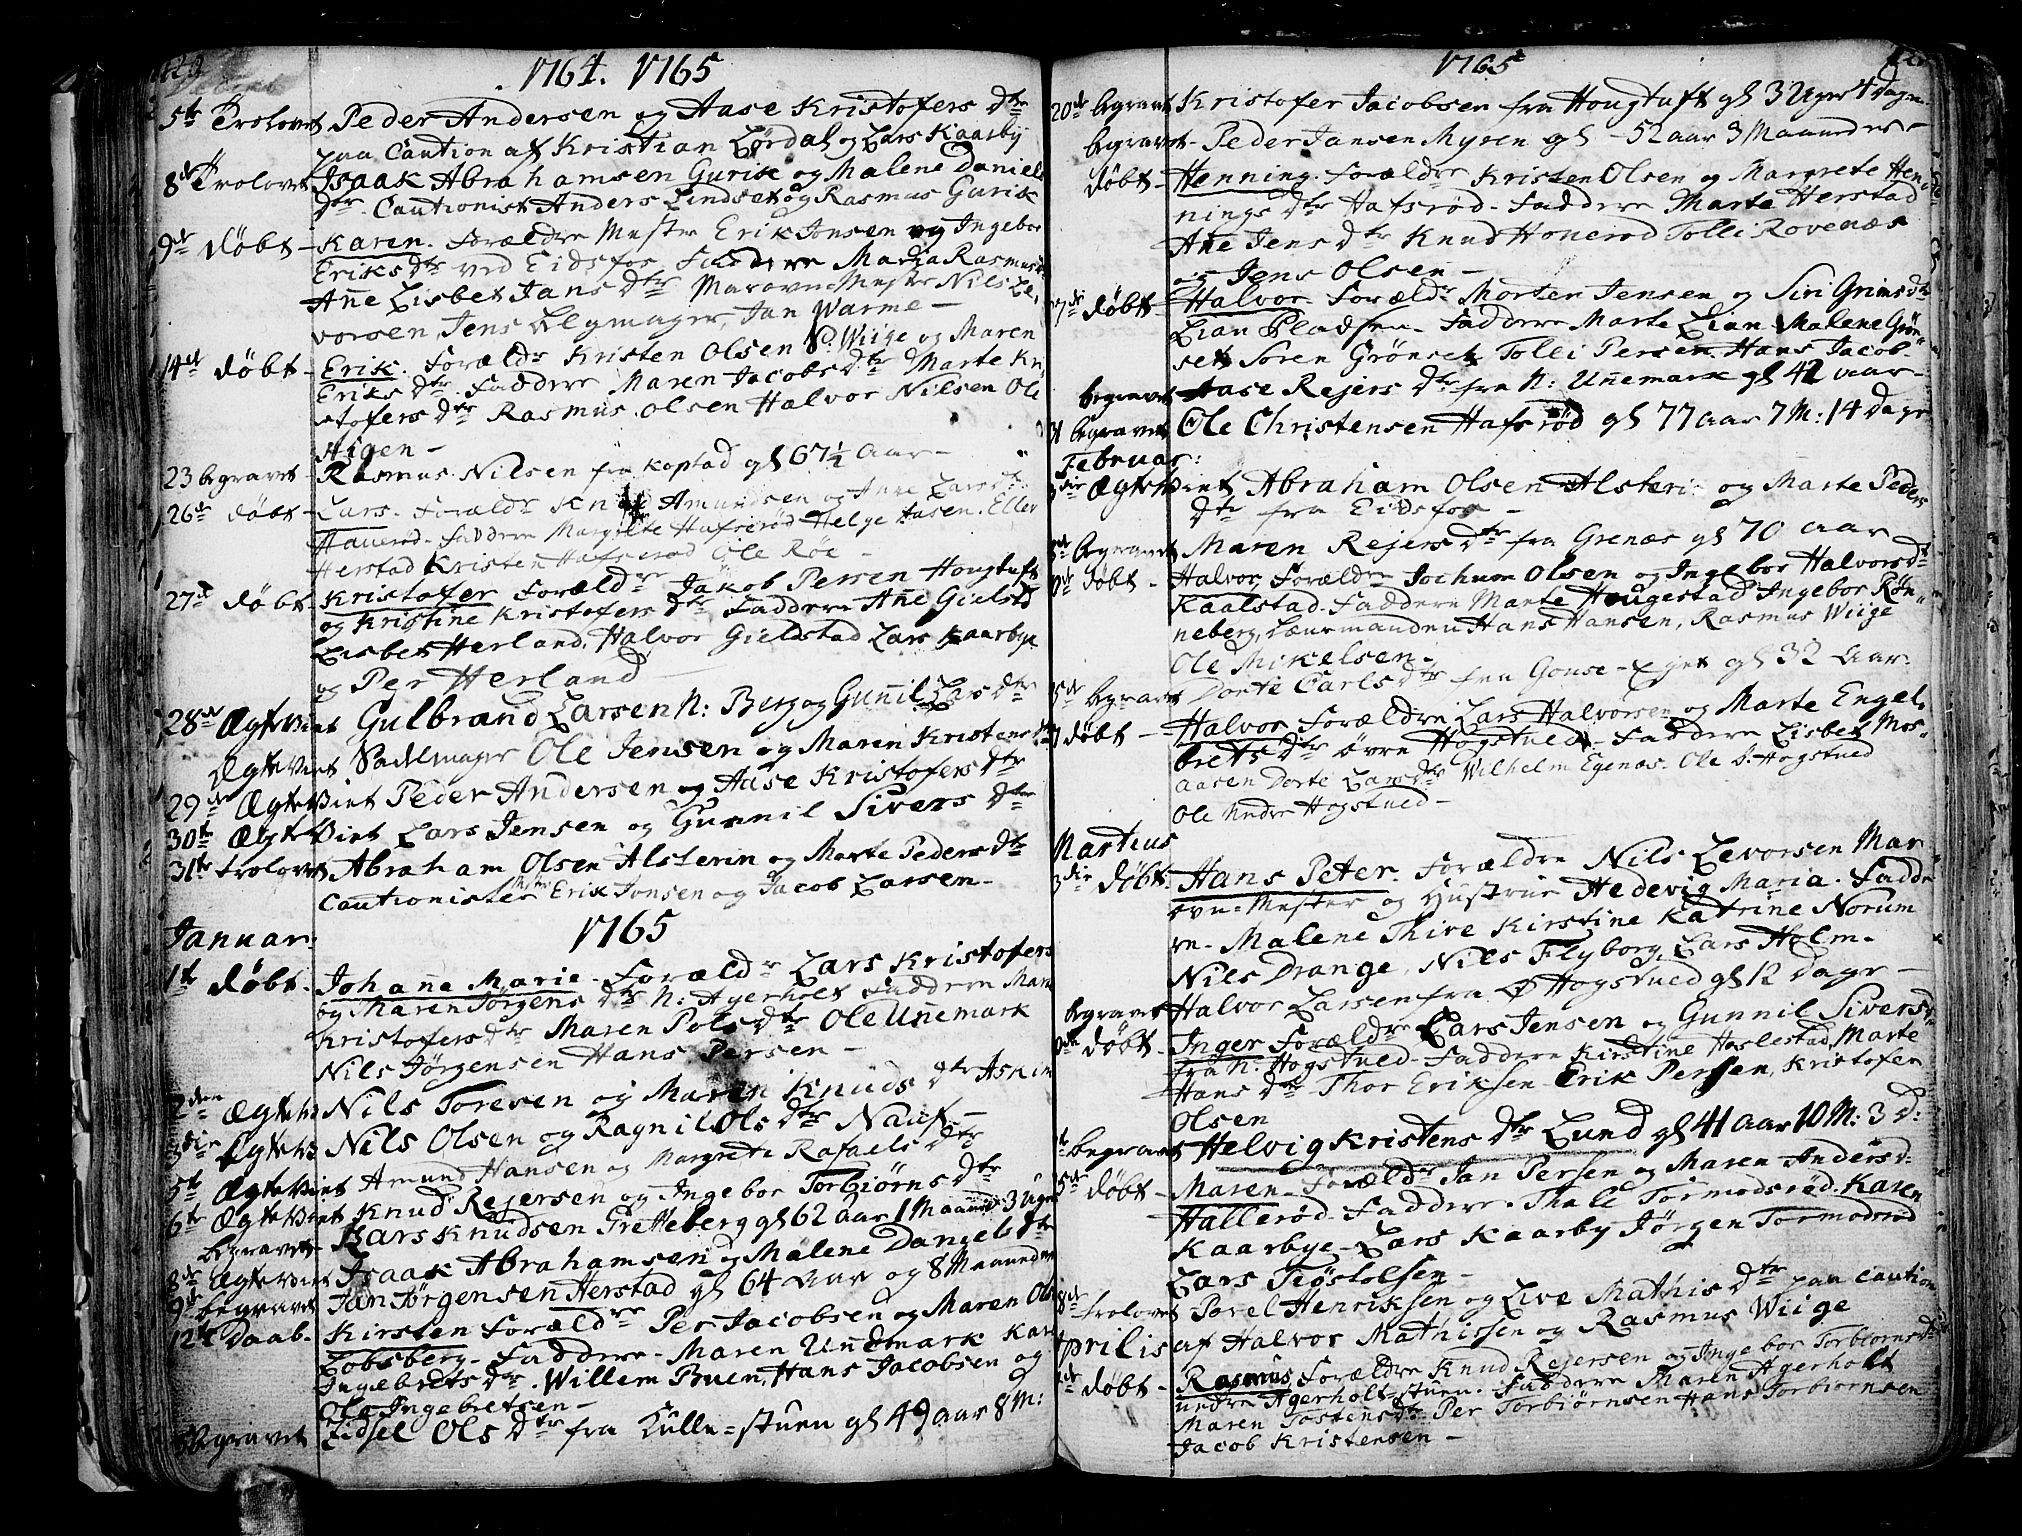 1764. 1765
5te Trolovet Peder Andersen og Aase Kristofers Dtr
paa Caution af Kristian Lørdal og Lars Kaarby
8de Trolovet Isaak Abrahamsen Gurik og Malene Daniels
Dtr. Cautionist Anders Lindset og Rasmus Gurik
9de døbt - Karen. Forældre Mester Erik Jonsen og Ingebor
Eriks Dtr ved Eidsfos Faddere Maria Rasmus
Anne Lisbet Jans Dtr Maravn Mester Nils Le,
vorsen, Jens Blegmager, Jan Warme -
14de døbt - Erik. Foræld: Kristen Olsen Wiige og Maren
Eriks Dtr. Faddere Maren Jacobs Dtr Marte Kri
stofers Dtr Rasmus Olsen Halvor Nilsen Ole
Higen -
23 begravet Rasmus Nilsen fra Koptad gl 67½ Aar -
26de døbt - Lars. Foræld: Knud Amundsen og Anne Lars Dtr
Hauerød. Faddere Margrete Hafsrød Helge Aasen. Eller
Herstad Kristen Hafsrød Ole Røe -
27de døbt - Kristofer Foræld: Jakob Persen Hougtuft
og Kristine Kristofers Dtr Faddere Anne Gielstd
Lisbet Herland, Halvor Gieldstad Lars Kaarbye
og Per Herland
28de ÆgteViet Gulbrand Larsen N: Berg og Gunnil Lars Dtr
ÆgteViet Sadlmager Ole Jensen og Maren Kristens Dtr
29de ÆgteViet Peder Andersen og Aase Kristofers Dtr
30te ÆgteViet Lars Jensen og Gunnil Sivers Dtr
31te trolovet Abraham Olsen Alsterin og Marte Peders Dtr
Cautionister Mster Erik Jonsen og Jacob Larsen -
Januar: 1765
1te døbt. Johanne Marie - Foræld: Lars Kristofers
og Maren Jørgens Dtr N: Agerholt Faddere Mari
Kristofers Dtr Maren Pols Dtr Ole Unnemark
Nils Jørgensen Hans Persen -
2den Ægtevi Nils Toresen og Maren Knuds Dtr Askim
3die ÆgteVi Nils Olsen og Ragnil Ols Dtr Nauf -
5te ÆgteViet Amund Hansen og Margrete Rafaels Dtr
6te ÆgteViet Knud Rejersen og Ingebor Torbiørns Dtr
begravet - Lars Knudsen Pretteberg gl 62 aar 1 Maaned 3 Uger
8de ÆgteViet Isaak Abrahamsen og Malene Daniels Dtr
9de begravet Jan Jørgensen Herstad gl 64 Aar og 8 Maaneder
12te Daab. Kirsten Foræld: Per Jacobsen og Maren Ols
Lobsberg - Faddere - Maren Undmark Kari
Ingebrets Dtr. Willem Buen, Hans Jacobsen og
Ole Ingebretsen -
Begravet Zidsel Ols Dtr fra Lille=stuen gl 49 aar 8 M:
1765
20de begravet Kristofer Jacobsen fra Hougtuft gl 3 Uger 4 Dage
begravet - Peder Jansen Myren gl - 52 aar 3 Maaneder -
døbt - Henning. Forældre Kristen Olsen og Margrete Hen
nings Dtr Hafsrød - Faddere Marte Herstad
Anne Jens Dtr Knud Honerød Tolli Rovenæs
og Jens Olsen -
27de døbt - Halvor Foræld: Morten Jensen og Siri Grims Dtr
Lian Pladsen. Faddere Marte Lian Malene Grøn
set Søren Grønset Tolli Persen Hans Jacob.
begravet Aase Rejers Dtr fra N: Unnemark gl 42 aar -
31 begravet Ole Christensen Hafsrød gl 77 aar 7 M: 14 Dage
Februar:
3die ÆgteViet Abraham Olsen Alsterin og Marte Peders
Dtr fra Eidsfos -
begravet Maren Rejers Dtr fra Grenæs gl 70 aar
døbt - Halvor Foræld: Jochum Olsen og Ingebor Halvors Dtr
Kaalstad. Faddere Marte Hougestad Ingebor Røn,
neberg, Lænsmanden Hans Hansen, Rasmus Wiige
Ole Mikelsen -
begravet Dorte Carls Dtr fra Gouse-Ejet gl 32 Aar.
døbt - Halvor Forældre Lars Halvorsen og Marte Engel,
brets Dtr øvre Hogstved. Faddere Lisbet Mos-
aasen Dorte Lars Dtr Wilhelm Egenæs. Ole S: Hogstved
Ole Nedre Hogstved -
Martius
3die døbt. Hans Peter. Forældre Nils Levorsen Mar
ovn=Mester og Hustrue Hedevig Maria. Fadde
re - Malene Thire Kirstine Katrine Norum
Nils Drange, Nils Flyborg, Lars Holm -
begravet Halvor Larsen fra Ø Hogstved gl 12 Dage -
døbt - Inger Foræld: Lars Jensen og Gunnil Sivers Dtr
fra N: Hogstved. Faddere Kirstine Haslestad, Marte
Hans Dtr - Thor Eriksen - Erik Persen, Kristofer
Olsen
begravet Helvig Kristens Dtr Lund gl 41 aar 10 M: 3 D:
5de døbt - Maren - Foræld: Jan Persen og Maren Anders D:
Hallerød. Faddere - Thale Tormodsrød. Karen
Kaarbye - Lars Kaarby Jørgen Tormodsrød
Lars Tiøstolsen -
trolovet Povel Henriksen og Live Mathis Dtr paa caution
af Halvor Mathissen og Rasmus Wiige
prilis
døbt - Rasmus Forældre Knud Rejersen og Ingebor Torbiørns Dtr
nedre Agerholt=stuen. Faddere Maren Agerholt
Maren Tostens Dtr Per Torbiørnsen Hans Torbiørnsen
Jacob Kristensen -